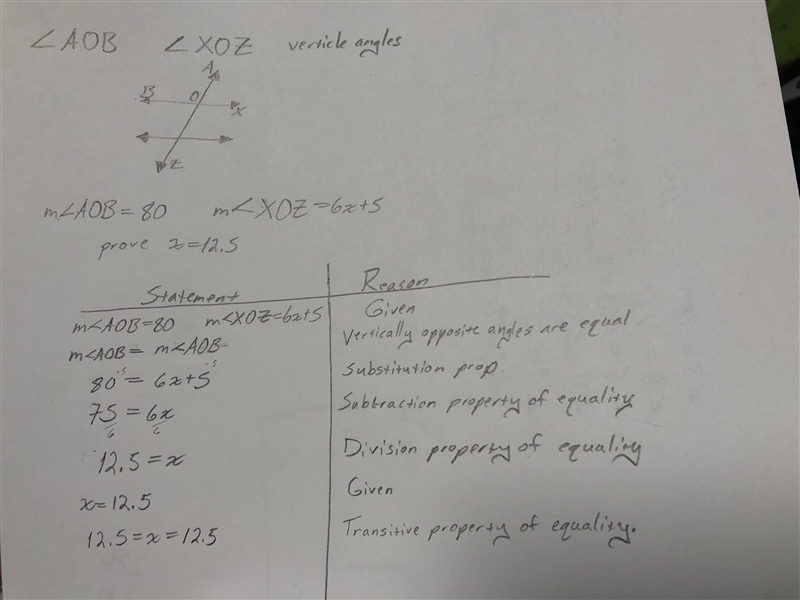 ∠AOB ∠XOZ verticle angles
A
B O
X
Z
m∠AOB = 80 m∠XOZ = 6x+5
prove x = 12.5
Statement Reason
m∠AOB = 80 m∠XOZ = 6x+5 Given
m∠AOB = m∠AOB Vertically opposite angles are equal
80 -5 = 6x+5 -5 Substitution prop
75/6 = 6x/6 Subtraction property of equality
12.5 = x Division property of equality
x = 12.5 Given
12.5 = x = 12.5 Transitive property of equality.